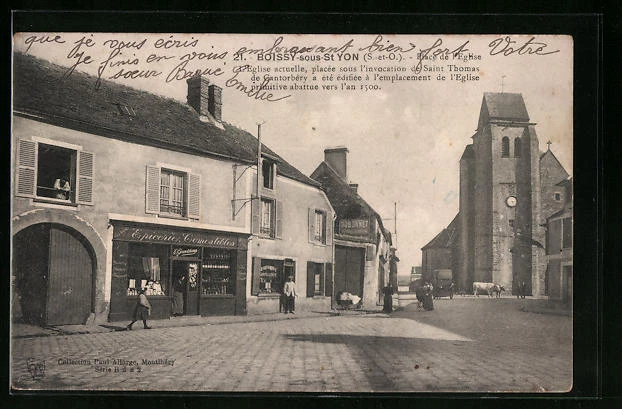 que je vous écris
je finis en vous embrassant bien fort Votre
sœur
Emilie
21. BOISSY-sous-St YON (S.-et-O.). - Place de l'Eglise
L'Eglise actuelle, placée sous l'invocation de Saint Thomas
de Cantorbéry a été édifiée à l'emplacement de l'Eglise
primitive abattue vers l'an 1500.
Epicerie Comestibles
Collection Paul Allorge, Montlhéry
Série B